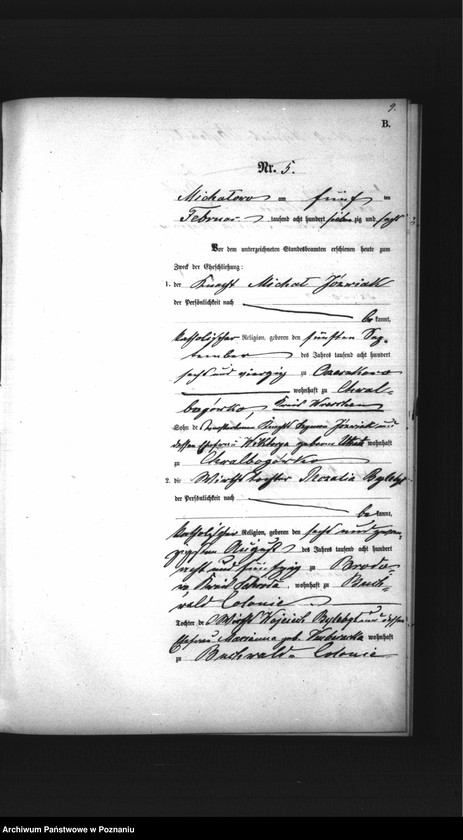 9.
B.
Nr. 5.
Michałowo am fünf ten
Februar tausend acht hundert siebenzig und sechs
Vor dem unterzeichneten Standesbeamten erschienen heute zum
Zweck der Eheschließung:
1. der Knecht Michal Jozwiak
der Persönlichkeit nach
be kannt,
katholischer Religion, geboren den fünften Sep-
tember des Jahres tausend acht hundert
sechs und vierzig zu
wohnhaft zu Chwal-
bogórko Kreis Wreschen
Sohn de Knecht und
dessen Ehefrau geborene wohnhaft
zu Chwalbogórko
2. die Wirths Tochter Rozalia
der Persönlichkeit nach
be kannt,
katholischer Religion, geboren den sechs und zwan-
zigsten August des Jahres tausend acht hundert
acht und fünfzig zu Brodo-
wo, Kreis Schroda wohnhaft zu Buch-
wald Colonie
Tochter de s Wirth und dessen
Ehefrau Marianna geb. wohnhaft
zu Buchwald Colonie
Archiwum Państwowe w Poznaniu